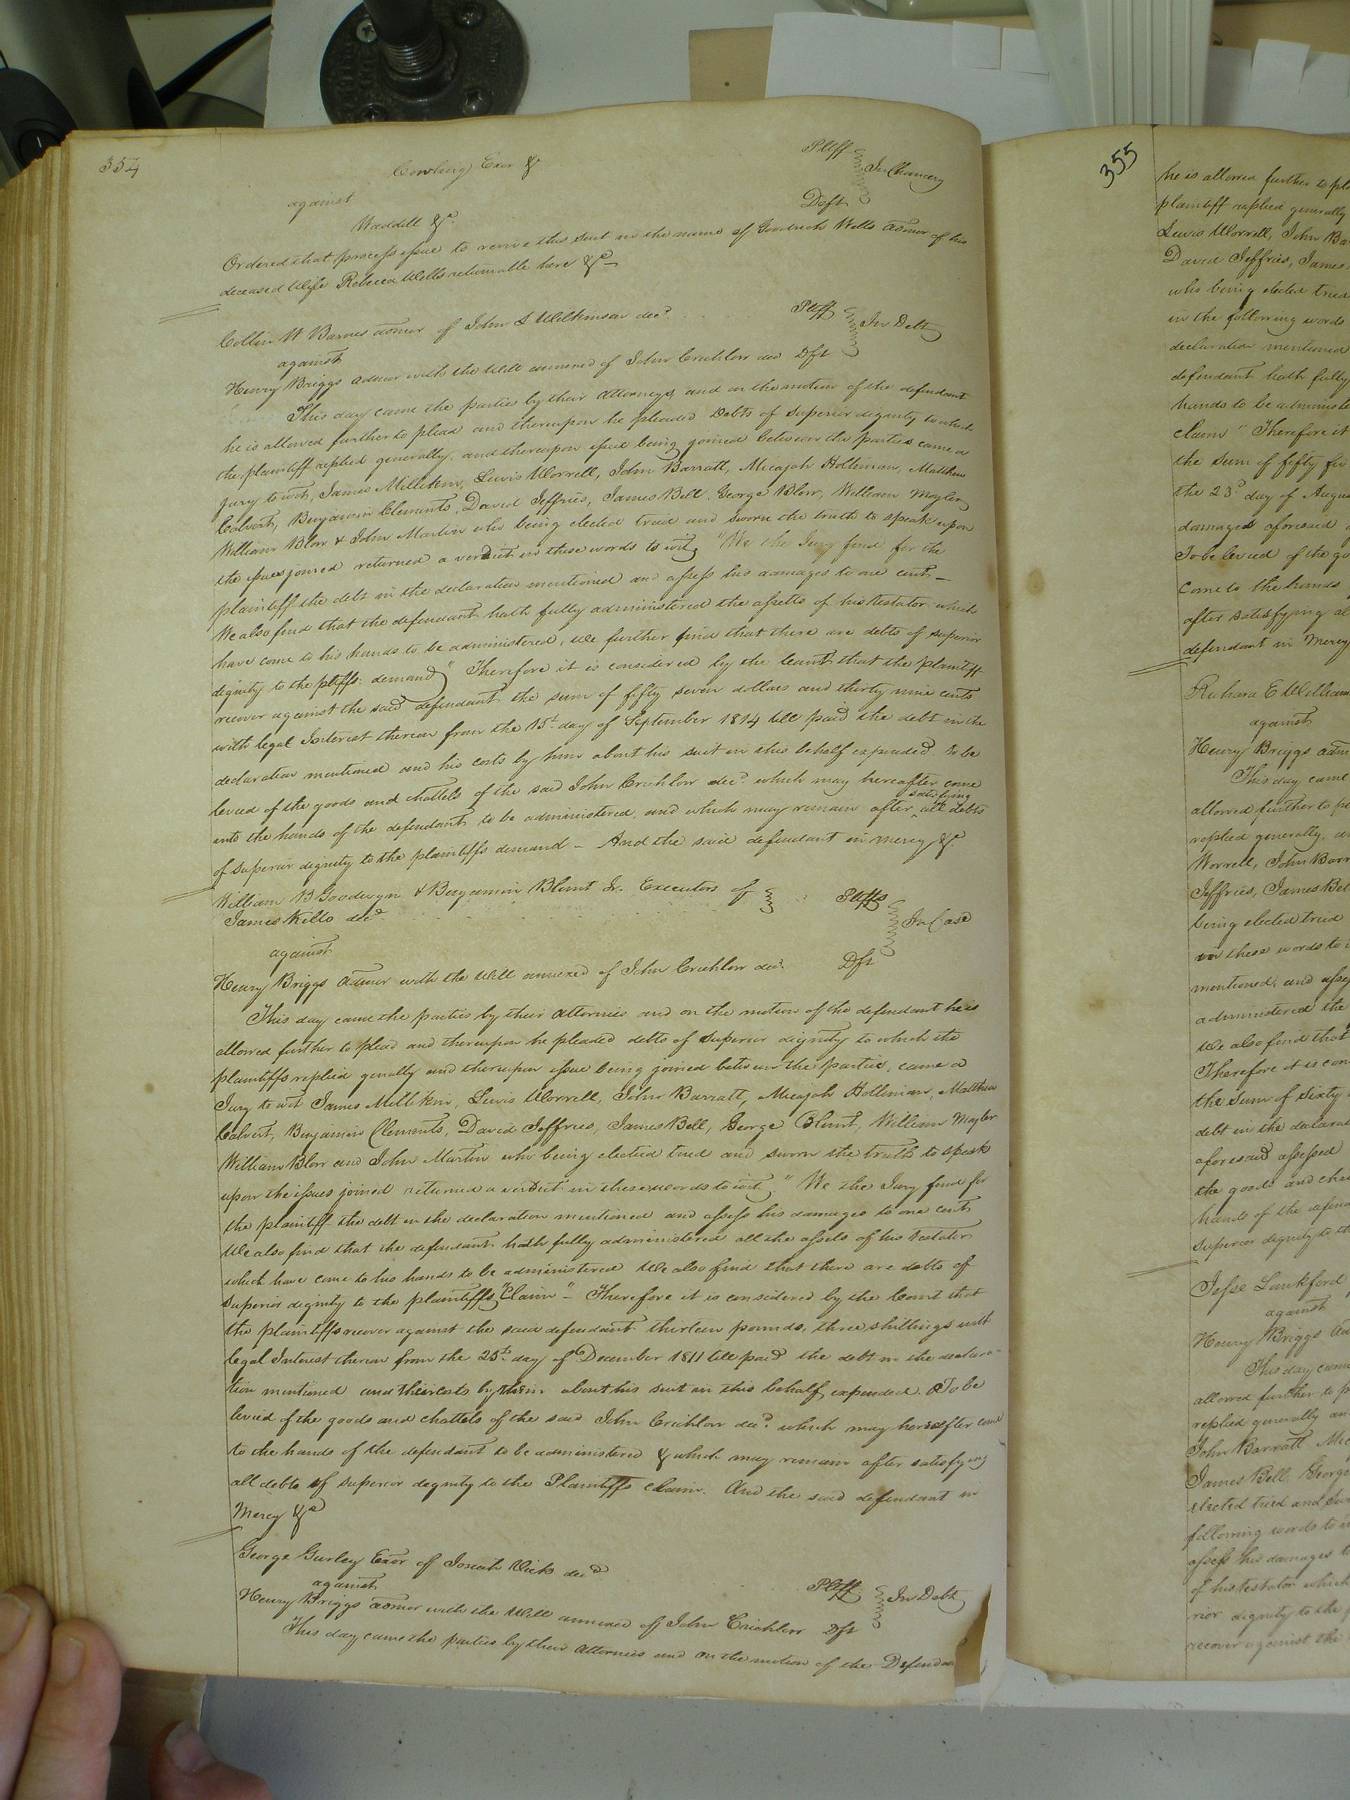 354
Cowling Exor &c
Pltff
against
In Chancery
Deft
Waddill &c.
Ordered that process issue to revive this suit in the name of Goodrich Wells admor of his
deceased Wife Rebecca Wells returnable here &c—
Collin W Barnes admor of John S Wilkinson decd. Pltff
against
In Debt
Henry Briggs admor with the Will annexed of John Crichlow dec Dft
This day came the parties by their attorneys and on the motion of the defendant
he is allowed further to plead and thereupon he pleaded Debts of superior dignity to which
the plaintiff replied generally, and thereupon issue being joined between the parties came a
jury to wit, James Millikin, Lewis Worrell, John Barratt, Micajah Holliman, Matthew
Calvert, Benjamin Clements, David Jeffries, James Bell, George Blow, William Moyler
William Blow & John Martin who being elected tried and sworn the truth to speak upon
the issues joined returned a verdict in these words to wit, "We the Jury find for the
plaintiff the debt in the declaration mentioned and assess his damages to one cent—
We also find that the defendant hath fully administered the assetts of his testator which
have come to his hands to be administered, We further find that there are debts of superior
dignity to the pltffs. demand" Therefore it is considered by the Court that the plaintiff
recover against the said defendant the sum of fifty seven dollars and thirty nine cents
with legal Interest thereon from the 15th day of September 1814 till paid the debt in the
declaration mentioned and his costs by him about his suit in this behalf expended to be
levied of the goods and chattels of the said John Crichlow decd. which may hereafter come
into the hands of the defendant to be administered, and which may remain after satisfying all debts
of superior dignity to the plaintiffs demand — And the said defendant in mercy &c
William B Goodwyn & Benjamin Blunt Jr. Executors of Pltffs
James Kello decd
In Case
against
Henry Briggs admor with the Will annexed of John Crichlow decd. Dft
This day came the parties by their attornies and on the motion of the defendant he is
allowed further to plead and thereupon he pleaded debts of superior dignity to which the
plaintiffs replied genally and thereupon issue being joined between the parties, came a
Jury to wit James Millikin, Lewis Worrell, John Barratt, Micajah Holliman, Matthew
Calvert, Benjamin Clements, David Jeffries, James Bell, George Blunt, William Moyler
William Blow and John Martin who being elected tried and sworn the truth to speak
upon the issues joined returned a verdict in these words to wit, "We the Jury find for
the plaintiff the debt in the declaration mentioned and assess his damages to one cent
We also find that the defendant hath fully administered all the assets of his testator
which have come to his hands to be administered We also find that there are debts of
superior dignity to the plaintiffs Claim" – Therefore it is considered by the Court that
the plaintiffs recover against the said defendant thirteen pounds, three shillings with
legal Interest thereon from the 25th. day of December 1811 till paid the debt in the declara-
tion mentioned and their costs by them about his suit in this behalf expended. To be
levied of the goods and chattels of the said John Crichlow decd. which may hereafter come
to the hands of the defendant to be administered & which may remain after satisfying
all debts of superior dignity to the Plaintiffs claim. And the said defendant in
Mercy &c
George Gurley Exor of Josiah Vick decd
Pltff
against
In Debt
Henry Briggs admor with the Will annexed of John Crichlow Dft
This day came the parties by their attornies and on the motion of the Defendant
355
he is allowed further to
plaintiff replied generally
Lewis Worrell, John
David Jeffries, James
who being elected tried
in the following words
declaration mentioned
defendant hath fully
hands to be
claim" Therefore it
the sum of fifty
the 23d day of
damages aforesaid
To be levied of the
come to the hands
after satisfying
defendant in Mercy
Richard E William
against
Henry Briggs
This day came
allowed further to
replied generally,
Worrell, John
Jeffries, James
being elected tried
in these words to
mentioned, and
administered the
We also find that
Therefore it is
the sum of sixty
debt in the
aforesaid assessed
the goods and
hands of the
superior dignity to
Jesse Lankford
against
Henry Briggs
This day came
allowed further to
replied generally
John Barratt
James Bell, George
elected tried and
following words to
assess his damages
of his testator which
rior dignity to the
recover against the